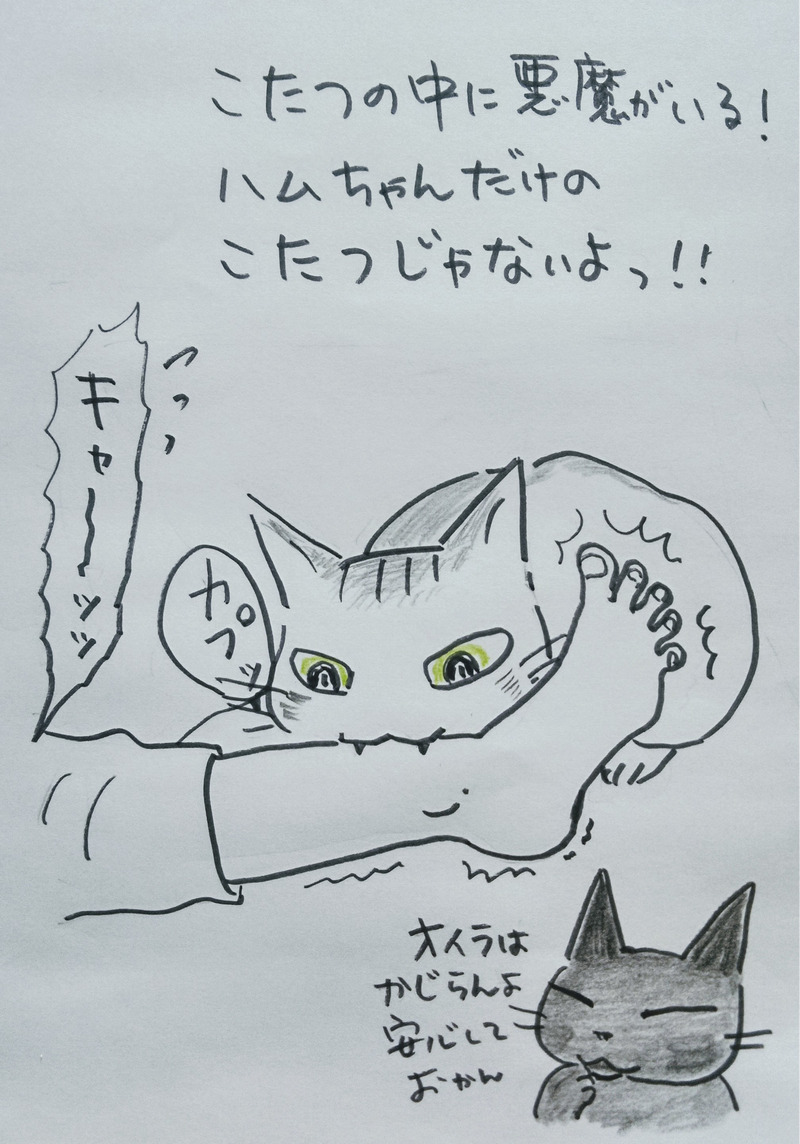 こたつの中に悪魔がいる!
ハムちゃんだけの
こたつじゃないよっ!!
キャ〜ッッ
カプッ
オイラは
かじらんよ
安心して
おかん